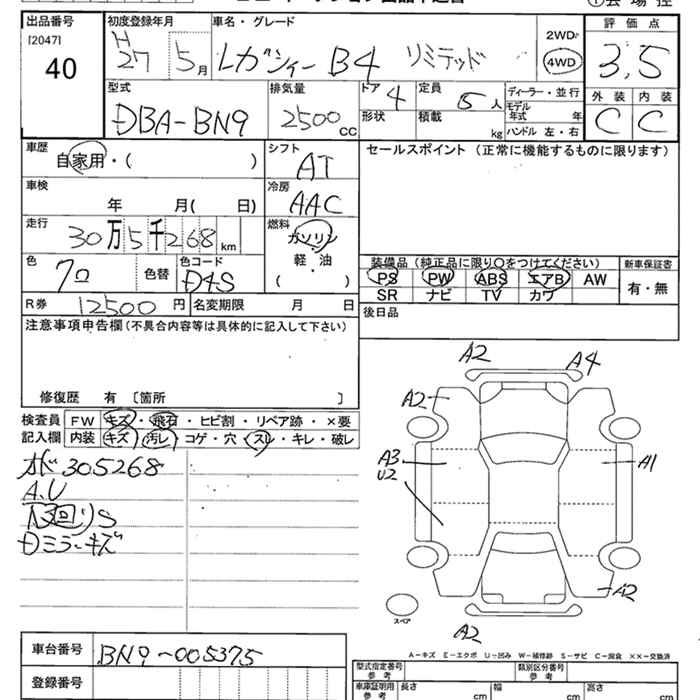 出品番号 初度登録年月 車名・グレード 評価点
[2047] H
40 27 5月 レガシィーB4 リミテッド 2WD 4WD 3,5
外装 内装
C C
型式 排気量 ドア 定員 ディーラー・並行
DBA-BN9 2500cc 4 5人 モデル年式 年
形状 積載 kg ハンドル 左・右
車歴 シフト セールスポイント (正常に機能するものに限ります)
自家用・( ) AT
車検 冷房
年 月( 日) AAC
走行 燃料
30万5千268km ガソリン
軽・油
( )
色 色替 色コード 装備品 (純正品に限り○をつけてください) 新車保証書
7ロ D4S PS PW ABS エアB AW 有・無
SR ナビ TV カワ
R券 12500円 名変期限 月 日 後日品
注意事項申告欄 (不具合内容等は具体的に記入して下さい)
修復歴 有 〔箇所 〕
検査員 FW キズ・飛石・ヒビ割・リペア跡・×要
記入欄 内装 キズ・汚レ・コゲ・穴・スレ・キレ・破レ
305268
A.U
Dミラーキズ
A2 A4
A2
A3 A1
U2
A2
A2
スペア
A-キズ E-エクボ U-凹み W-補修跡 S-サビ C-腐食 ××-交換済
車台番号 BN9-005375
登録番号
型式指定番号 参考 類別区分番号 参考
車庫証明用 参考 長さ cm 幅 cm 高さ cm